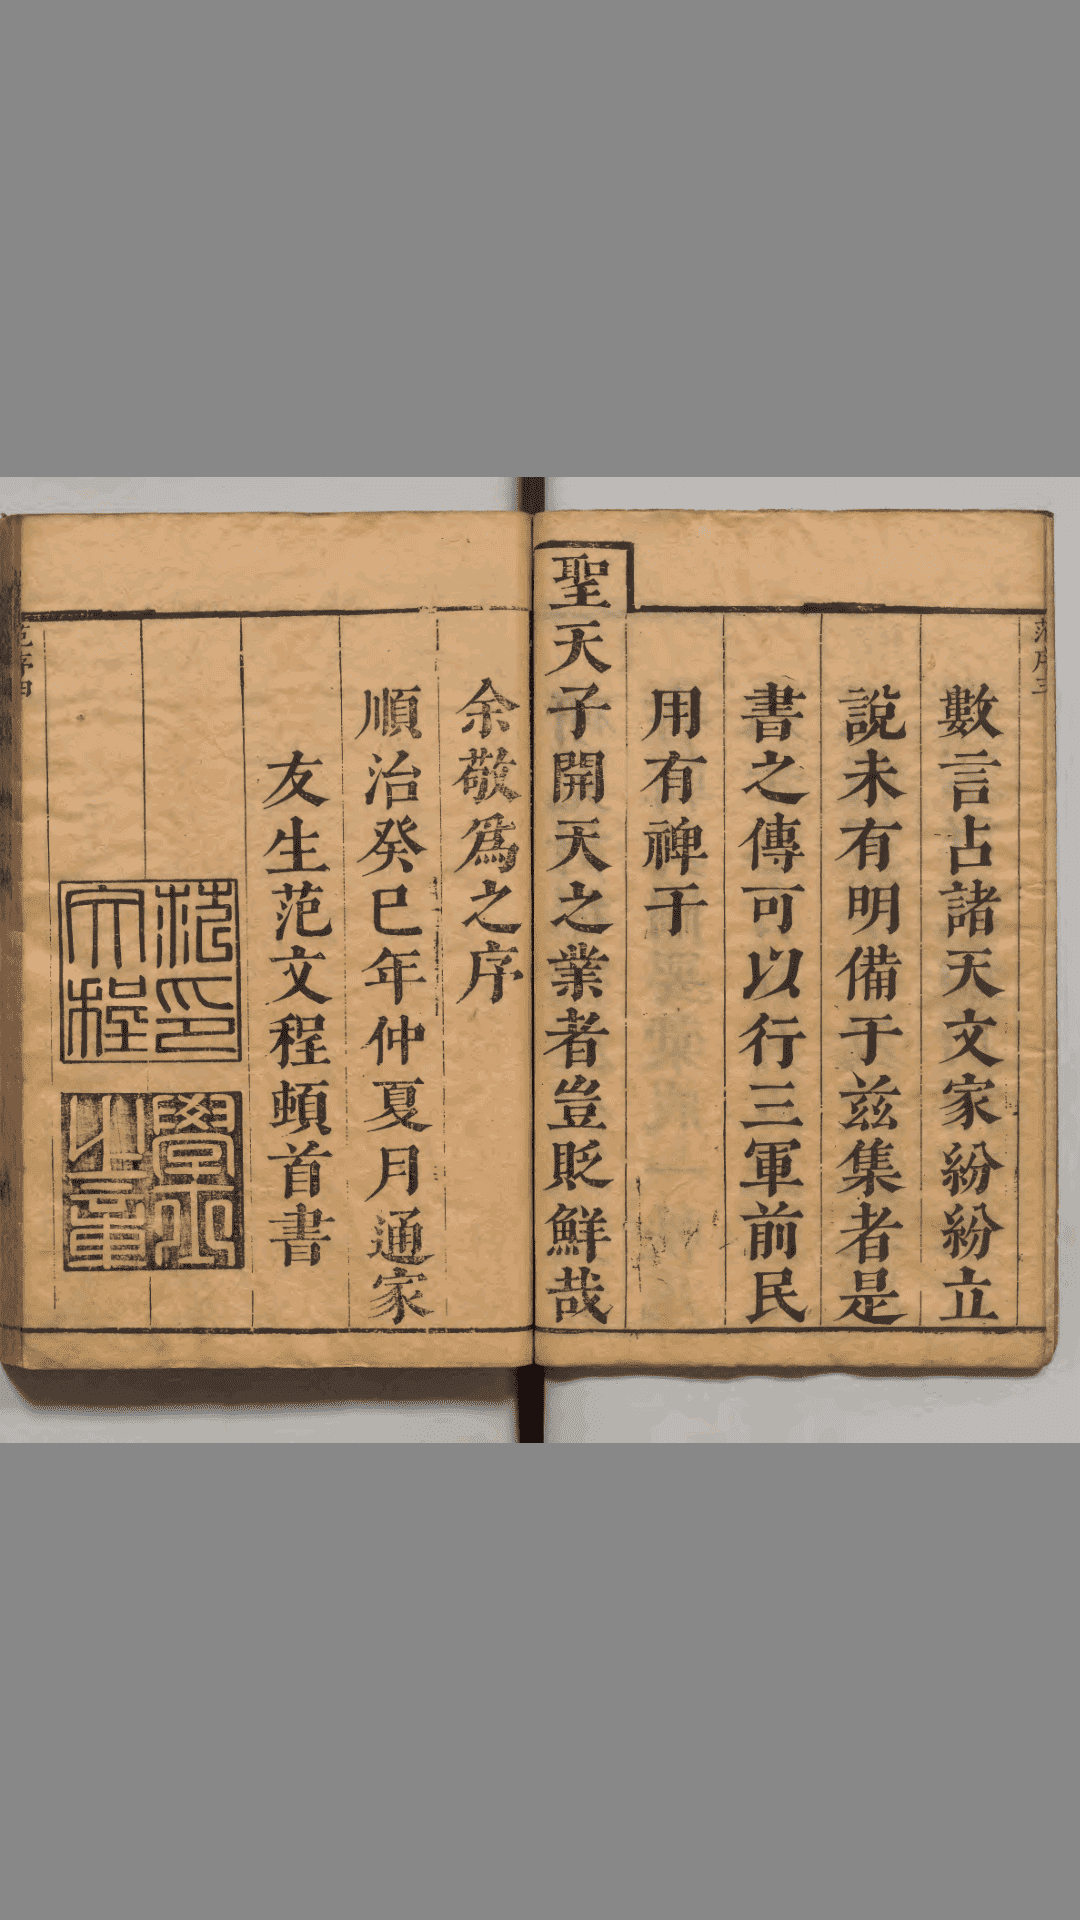 數言占諸天文家紛紛立
說未有明備于兹集者是
書之傳可以行三軍前民
用有裨于
聖天子開天之業者豈貶鮮哉
余敬爲之序
順治癸巳年仲夏月通家
友生范文程頓首書
范印
文程
之章
范序三
范序四